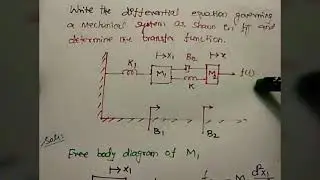 Write the differential equation governing
a mechanical system as shown in fig and
determine the transfer function.
→x₁ →x
K₁ M₁ B₁₂ K M₂ → f(t)
B₁ B₂
Soln:
Free body diagram of M₁
→x₁ d²x₁